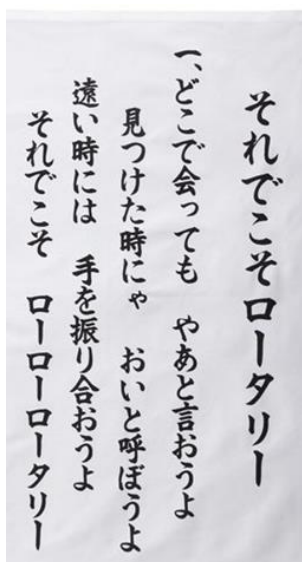 それでこそロータリー
一、どこで会っても　やあと言おうよ
見つけた時にゃ　おいと呼ぼうよ
遠い時には　手を振り合おうよ
それでこそ　ローローロータリー